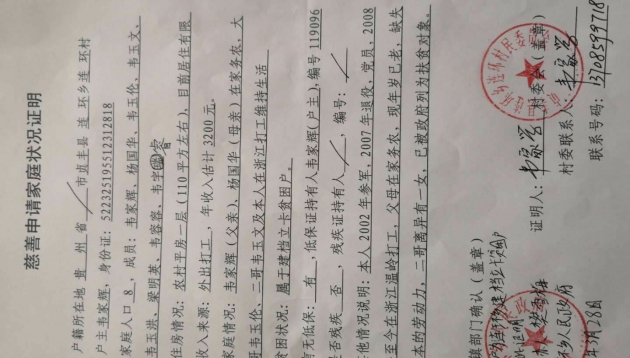 慈善申请家庭状况证明
户籍所在地 贵 州 省 市贞丰县 连 环乡连 环村
户主韦家辉，身份证：522325195512312818
家庭人口 8 ，成员：韦家辉、杨国华、韦玉伦、韦玉文、
韦玉洪、梁明英、韦容容、韦宇
住房情况：农村平房一层（110 平方左右），目前居住有限
收入来源：外出打工，年收入估计 3200 元。
家庭情况：韦家辉（父亲）、杨国华（母亲）在家务农，大
哥韦玉伦、二哥韦玉文及本人在浙江打工维持生活
贫困状况：属于建档立卡贫困户
有无低保： 有 ，低保证持有人韦家辉(户主)，编号 119096
是否残疾 否 ，残疾证持有人 ，编号：
其他情况说明：本人 2002 年参军，2007 年退役，党员，2008
至今在浙江温岭打工，父母在家务农，现年岁已老，缺失
本的劳动力，二哥离异有一女，已被政府列为扶贫对象。
证明人： ，村委会（盖章）
镇部门确认（盖章）
村委联系人：
联系号码：13708599718
乡人民政府
月28日